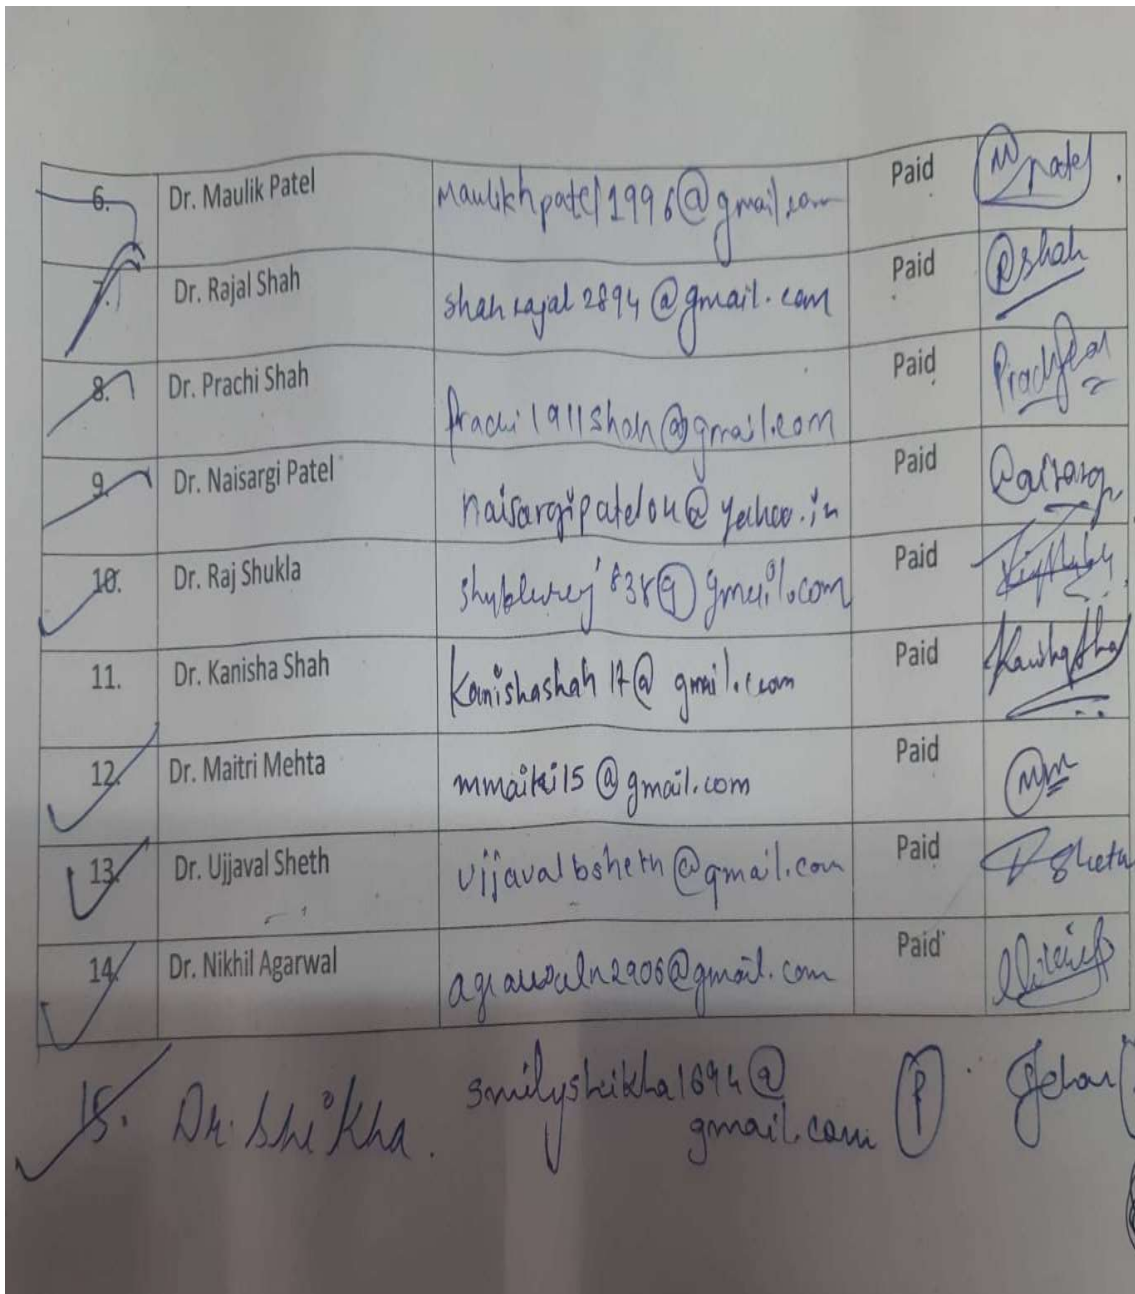 6. Dr. Maulik Patel maulikhpatel1996@gmail.com Paid M patel
7. Dr. Rajal Shah shahrajal2894@gmail.com Paid R shah
8. Dr. Prachi Shah prachi1911shah@gmail.com Paid
9. Dr. Naisargi Patel naisargipatel04@yahoo.in Paid Naisargi
10. Dr. Raj Shukla Paid
11. Dr. Kanisha Shah kanishashah17@gmail.com Paid
12. Dr. Maitri Mehta Paid MM
13. Dr. Ujjaval Sheth ujjavalbsheth@gmail.com Paid Sheth
14. Dr. Nikhil Agarwal Paid
15. Dr. Shikha. smilyshikha1694@ P
gmail.com